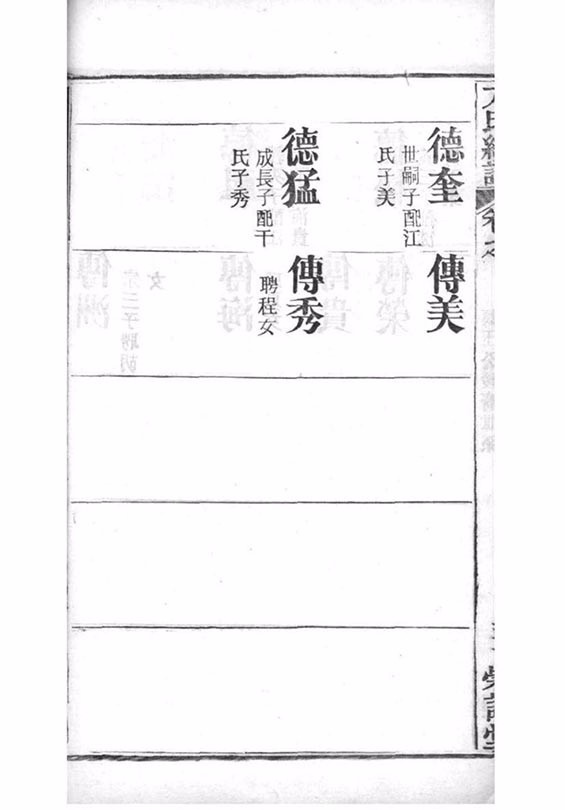 德奎
世嗣子配江
氏子美
德猛
成長子配干
氏子秀
傳美
傳秀
聘程女